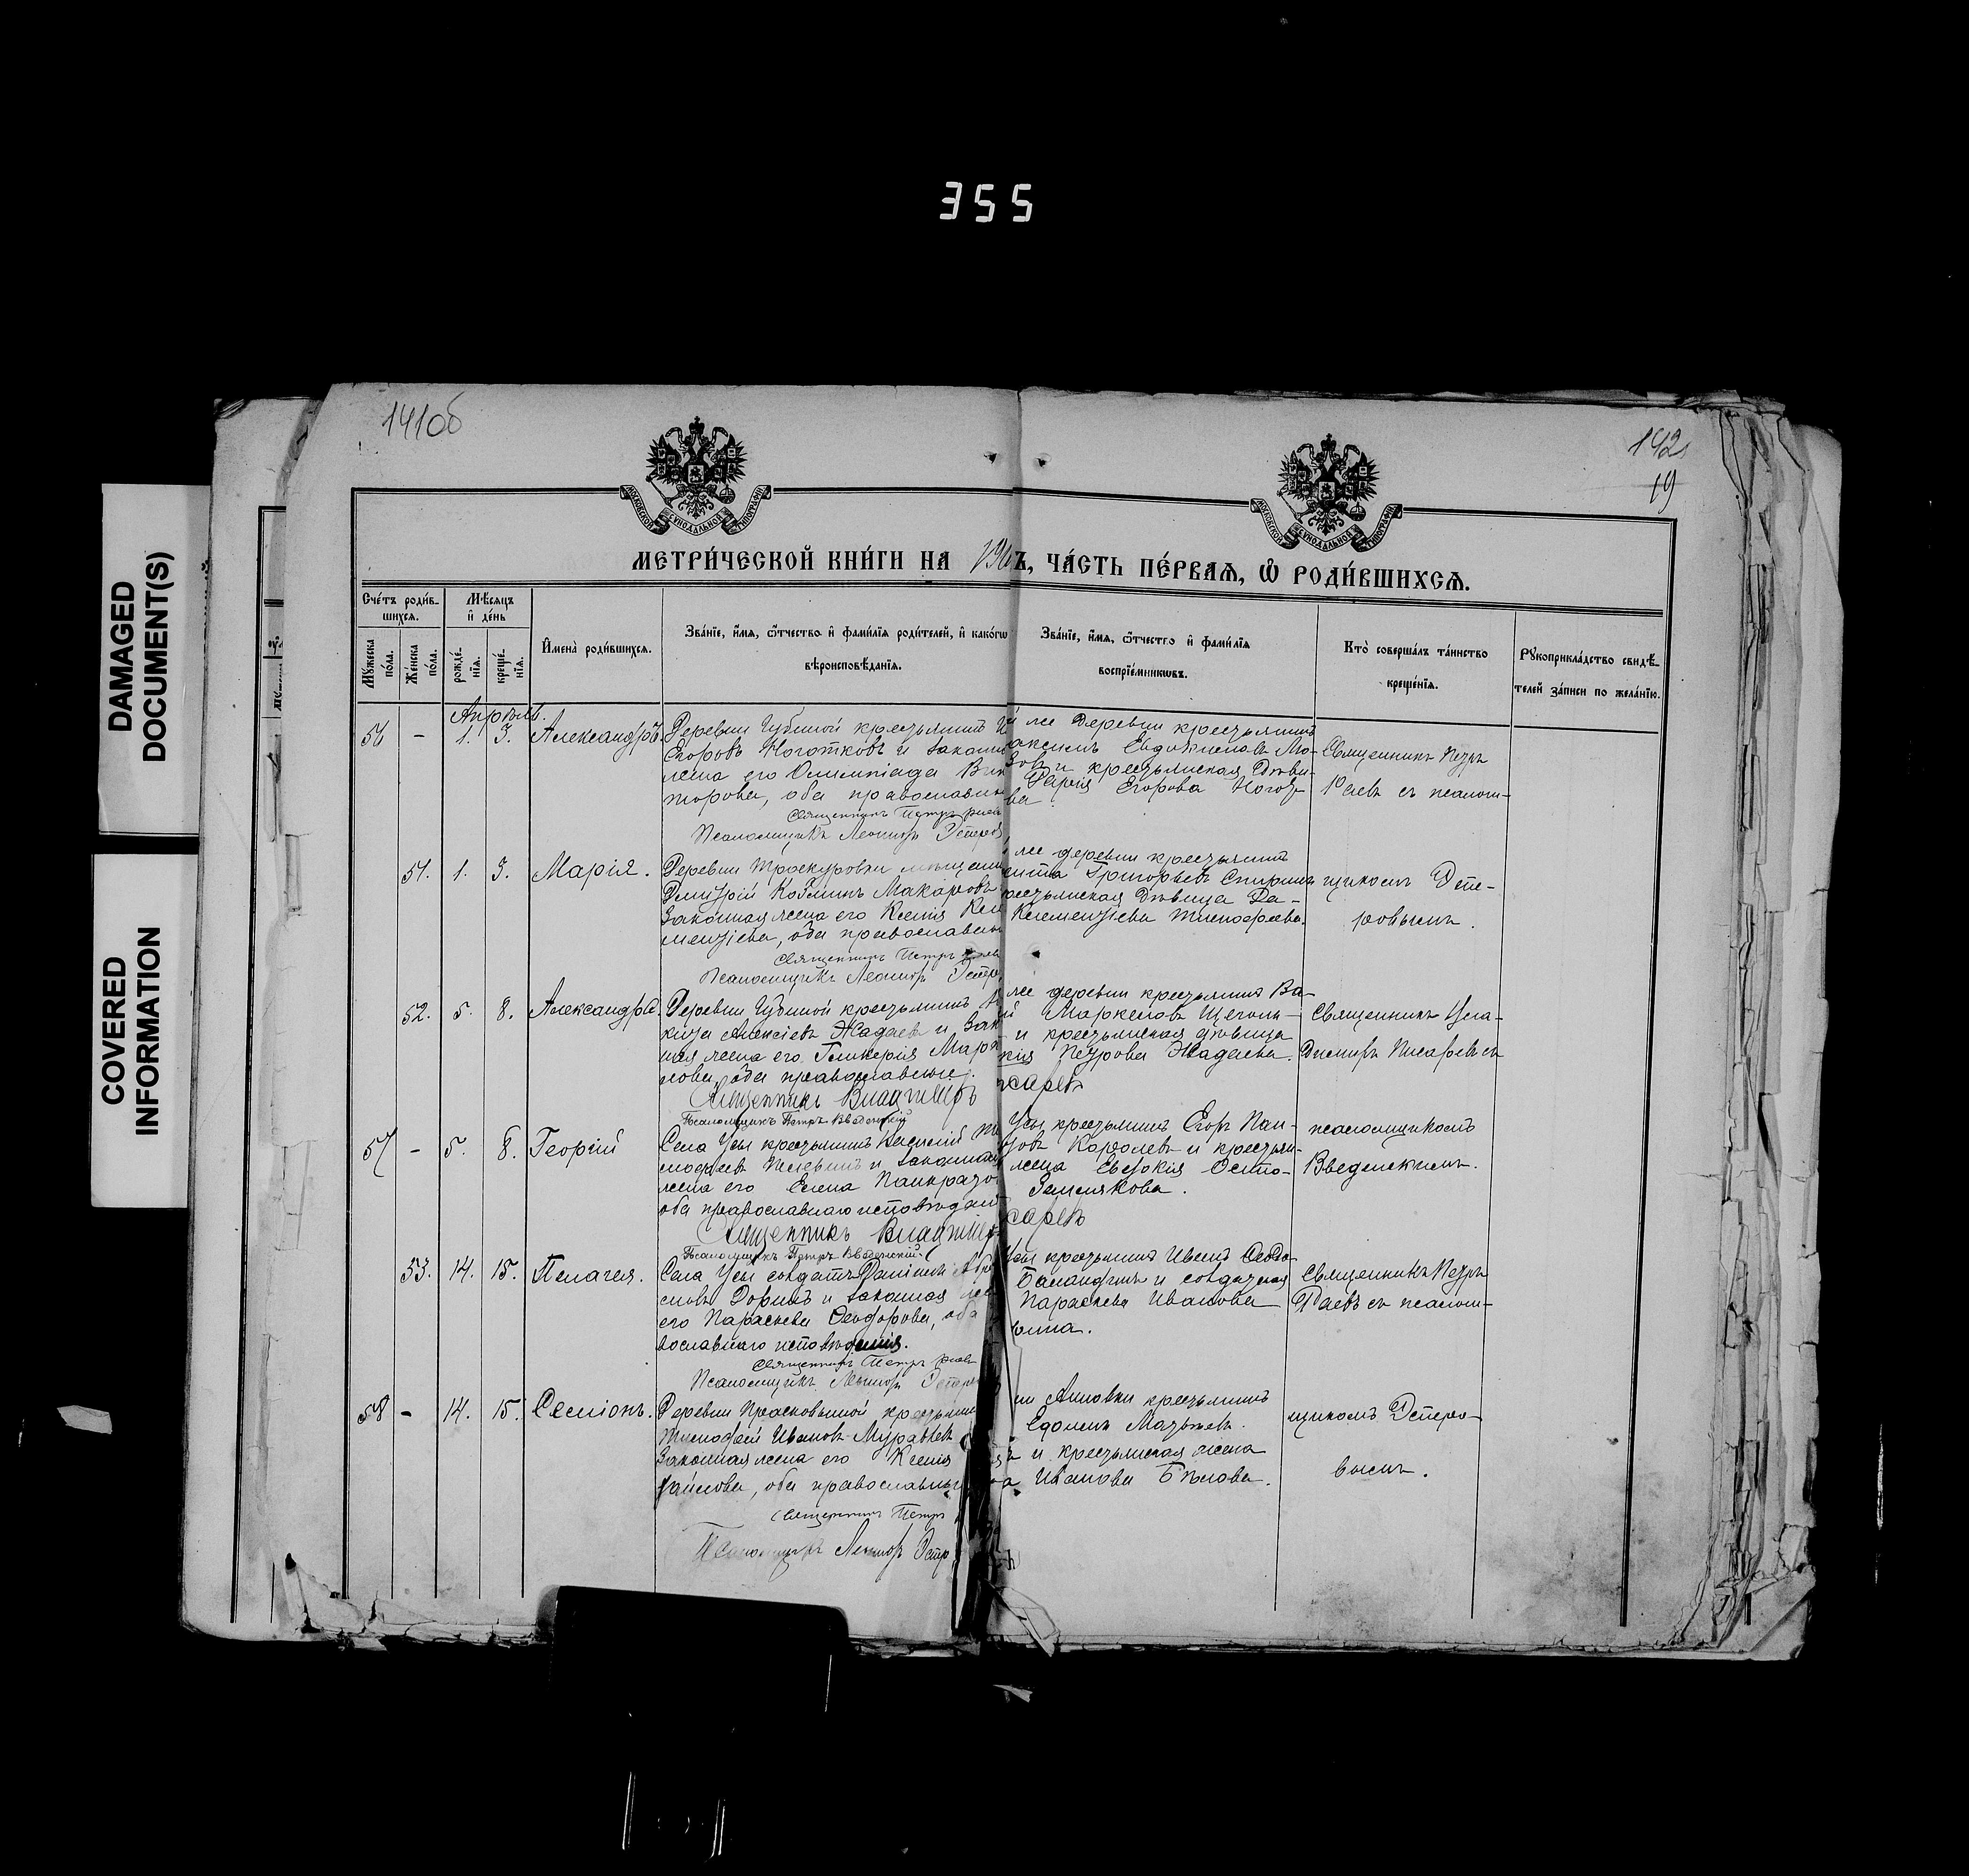 355
DAMAGED
DOCUMENT(S)
COVERED
INFORMATION
141об
142
19
МОСКОВСКОЙ СѴНОДАЛЬНОЙ ТИПОГРАФІИ
МОСКОВСКОЙ СѴНОДАЛЬНОЙ ТИПОГРАФІИ
МЕТРИ́ЧЕСКОЙ КНИ́ГИ НА
Ъ, ЧА́СТЬ ПЕ́РВАѦ, Ѡ РОДИ́ВШИХСѦ.
Сче́тъ роди́в-
шихсѧ.
Мꙋ́жеска
пола.
Же́нска
пола.
Мѣ́сѧцъ
и҆ де́нь
рожде́-
нїѧ.
креще́-
нїѧ.
И҆мена̀ роди́вшихсѧ.
Зва́нїе, и҆́мѧ, ѻ҆́тчество и҆ фами́лїѧ роди́телей, и҆ како́гѡ
вѣроисповѣ́данїѧ.
Зва́нїе, и҆́мѧ, ѻ҆́тчество и҆ фами́лїѧ
воспрїе́мникѡвъ.
Кто̀ соверша́лъ та́инство
креще́нїѧ.
Рꙋкоприкла́дство свидѣ́-
телей за́писи по жела́нїю.
Апрѣль.
56 - 1. 3. Александръ.
Деревни Губиной крестьянинъ
Егоровъ Ноготковъ и закон
жена его Олимпіада Вик
торова, оба православн
Священникъ Петръ Раевъ
Псаломщикъ Леонтій
й же деревни крестьянинъ
Евдокимовъ Мо-
зовъ и крестьянская дѣви-
Дарія Егорова Ногот-
ва
Священникъ Петръ
Раевъ съ псалом-
51. 1. 3. Марія.
Деревни Проскуровки мѣщани
Димитрій Козминъ Макаровъ
законная жена его Ксенія Кли
ментіева, оба православн
Священникъ Петръ
Псаломщикъ Леонтій
же деревни крестьянинъ
Григорьевъ Спиринъ
рестьянская дѣвица Да-
Клементіева Тимофеева.
щикомъ Дте-
ровымъ.
52. 5. 8. Александра.
Деревни Губиной крестьянинъ
кита Алексіевъ Жадаевъ и зак
ная жена его Гликерія Мар
кова, оба православные.
Священникъ Владимиръ
Псаломщикъ Петръ Введенскій
же деревни крестьянинъ Ва-
й Маркеловъ Щеголь-
и крестьянская дѣвица
кія Петрова Жадаева.
исаревъ
Священникъ Вла-
димиръ Писаревъ съ
57 - 5. 8. Георгій
Села Усы крестьянинъ Василій Ти
мофеевъ и законная
жена его Елена Панкрато
оба православнаго исповѣдані
Священникъ Владимир
Псаломщикъ Петръ Введенскій
Усы крестьянинъ Егоръ Пан-
товъ Королевъ и крестьян-
жена Евдокія
Землякова.
саревъ
псаломщикомъ
Введенскимъ.
53. 14. 15. Пелагея.
Села Усы солдатъ Даніилъ Абра
мовъ Доринъ и законная же
его Параскева Ѳеодорова, оба
вославнаго исповѣданія.
Священникъ Петръ Раевъ
Псаломщикъ Леонтій
Усы крестьянинъ Иванъ Ѳеодо-
Баландинъ и солдатская
Параскева Иванова
рина.
Священникъ Петръ
Раевъ съ псалом-
58 - 14. 15. Сѵмеонъ.
Деревни Просковьиной крестьяни
Тимофей Ивановъ Муравьевъ
законная жена его Ксенія
файлова, оба православны
Священникъ Петръ
Псаломщикъ Леонтій
ни Анновки крестьянинъ
ъ и крестьянская жена
а Иванова Бѣлова.
щикомъ
вымъ.